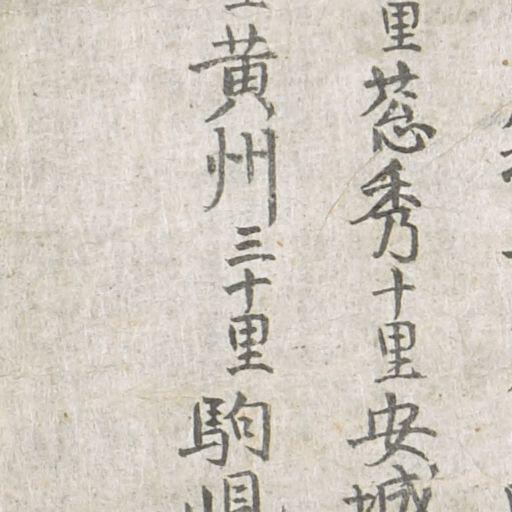 里葱秀十里安城
黄州三十里駒峴